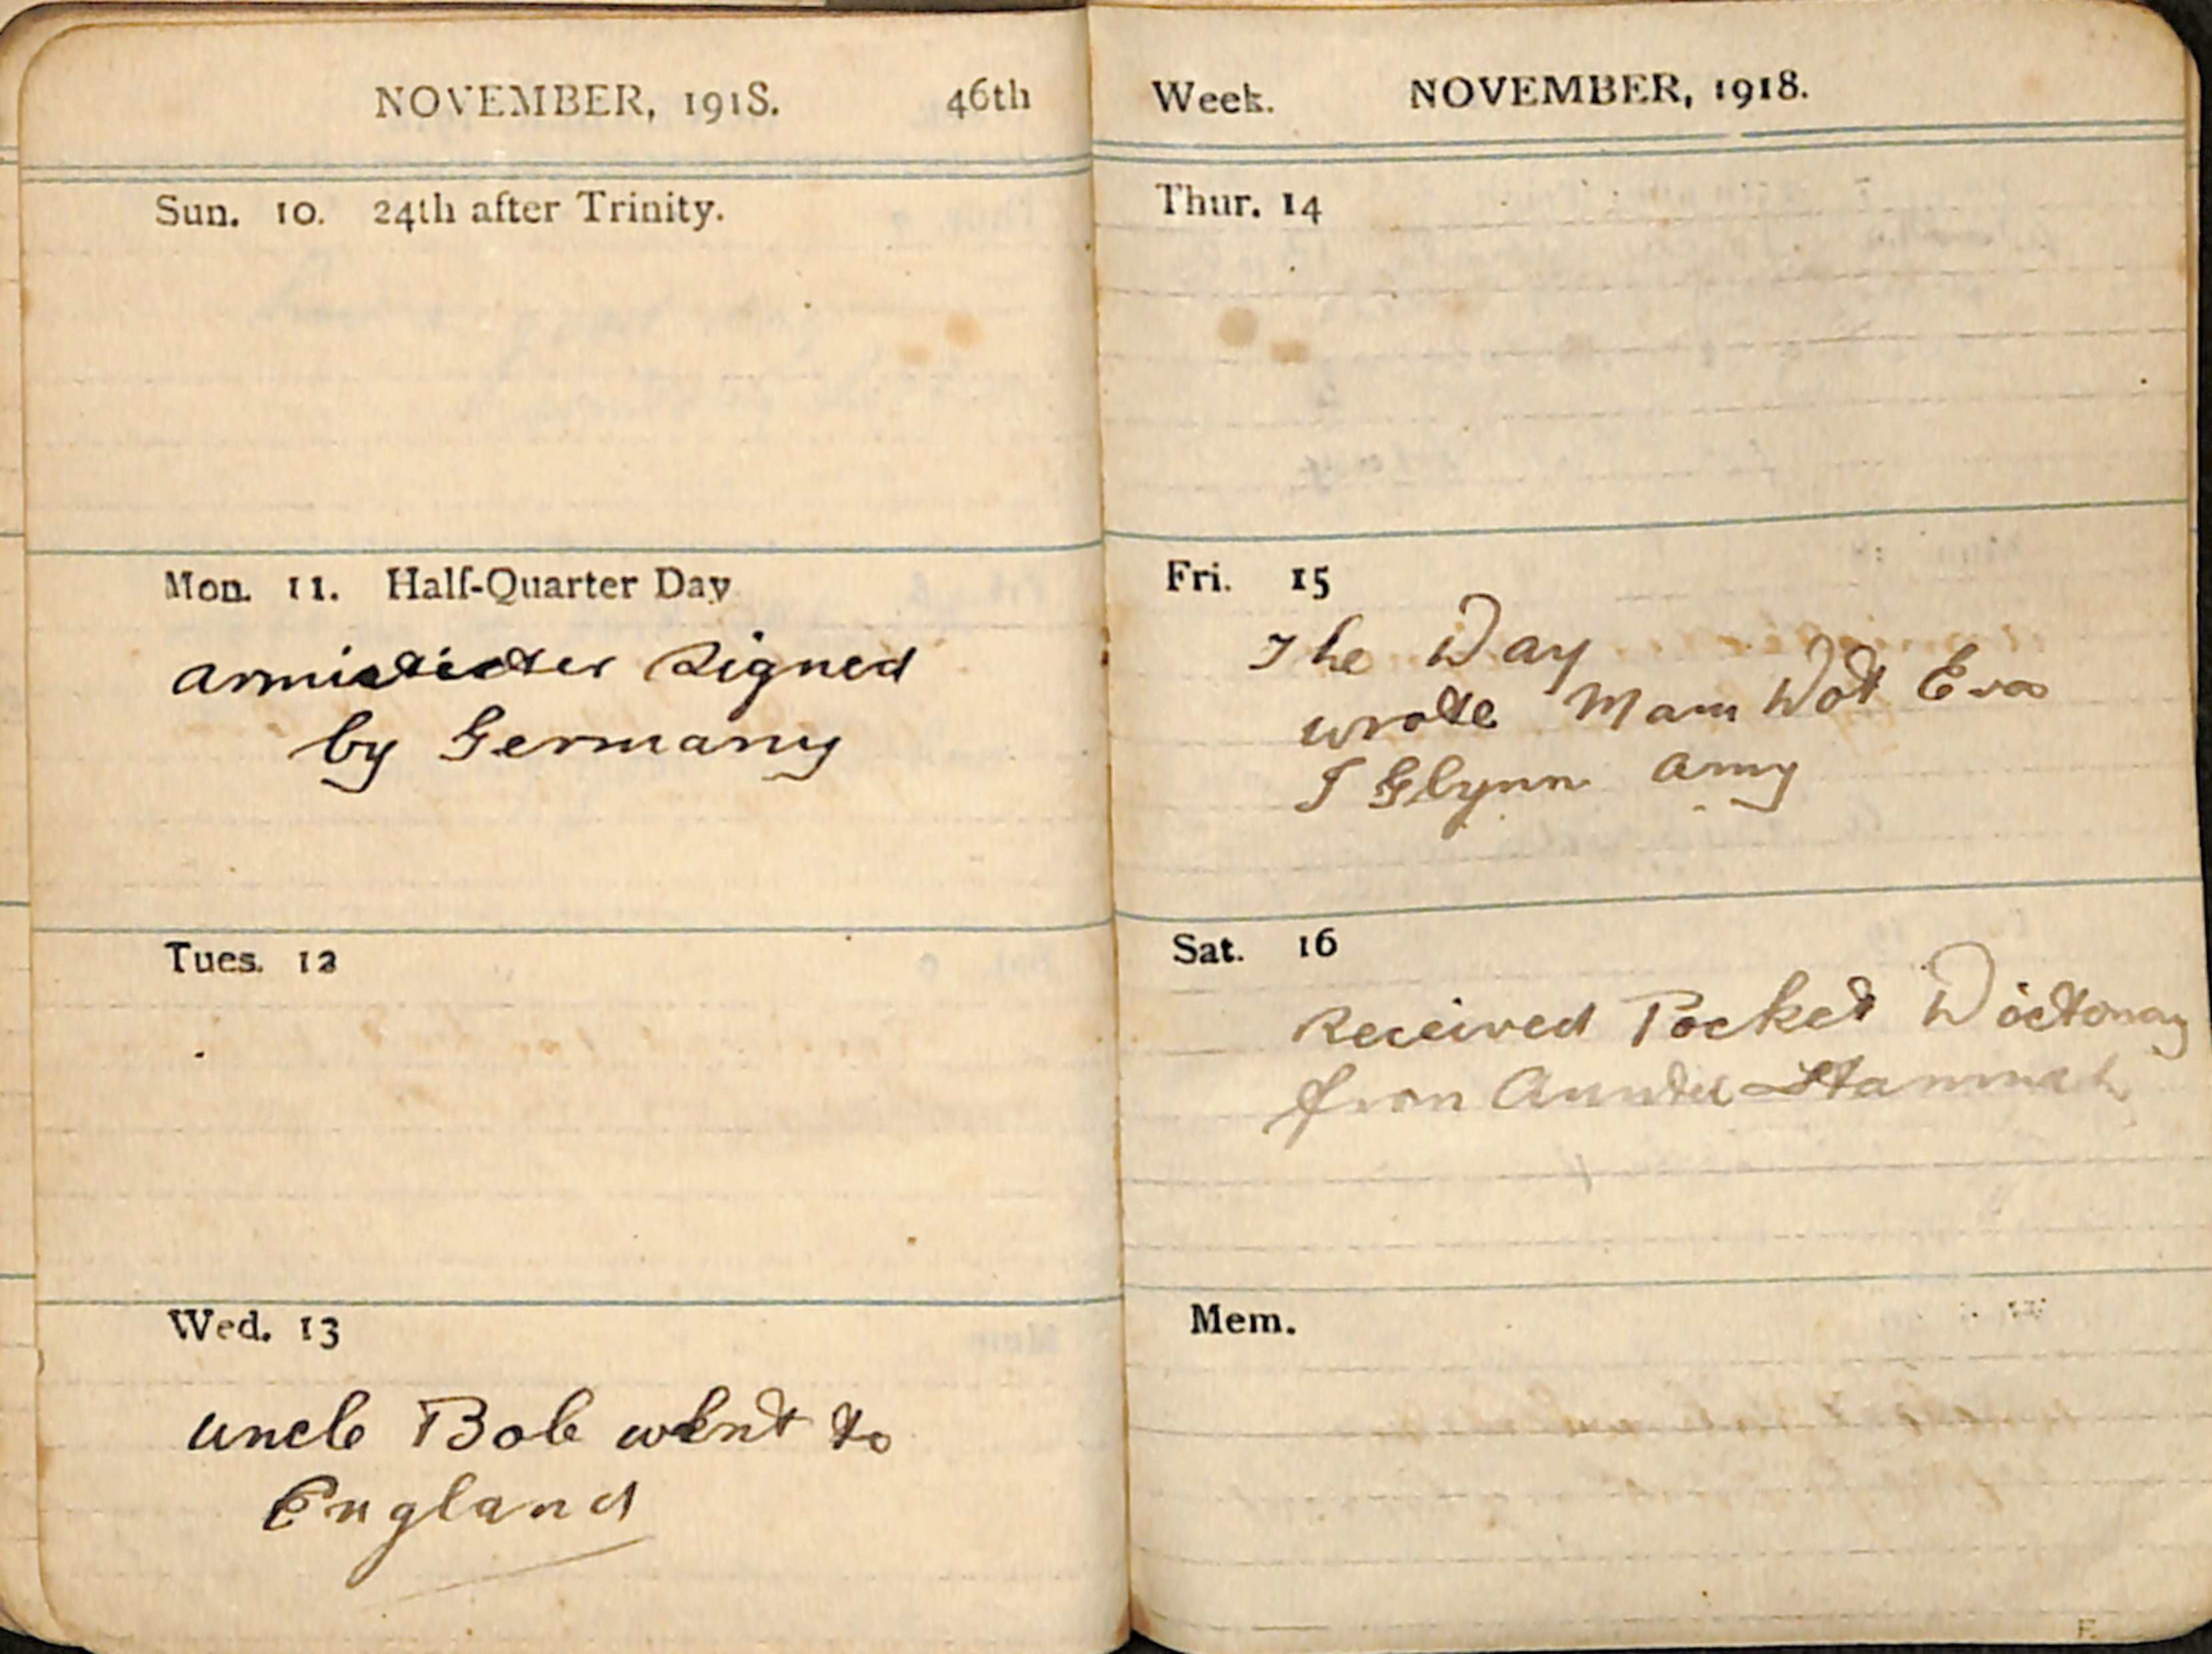 NOVEMBER, 1918. 46th
Sun. 10. 24th after Trinity.
Mon. 11. Half-Quarter Day
armisticter signed
by Germany
Tues. 12
Wed. 13
uncle Bob went to
England
Week. NOVEMBER, 1918.
Thur. 14
Fri. 15
The Day
wrote Mam Dot Eva
J Glynn Amy
Sat. 16
Received Pocket Dictonay
from Auntie Hannah
Mem.
F.